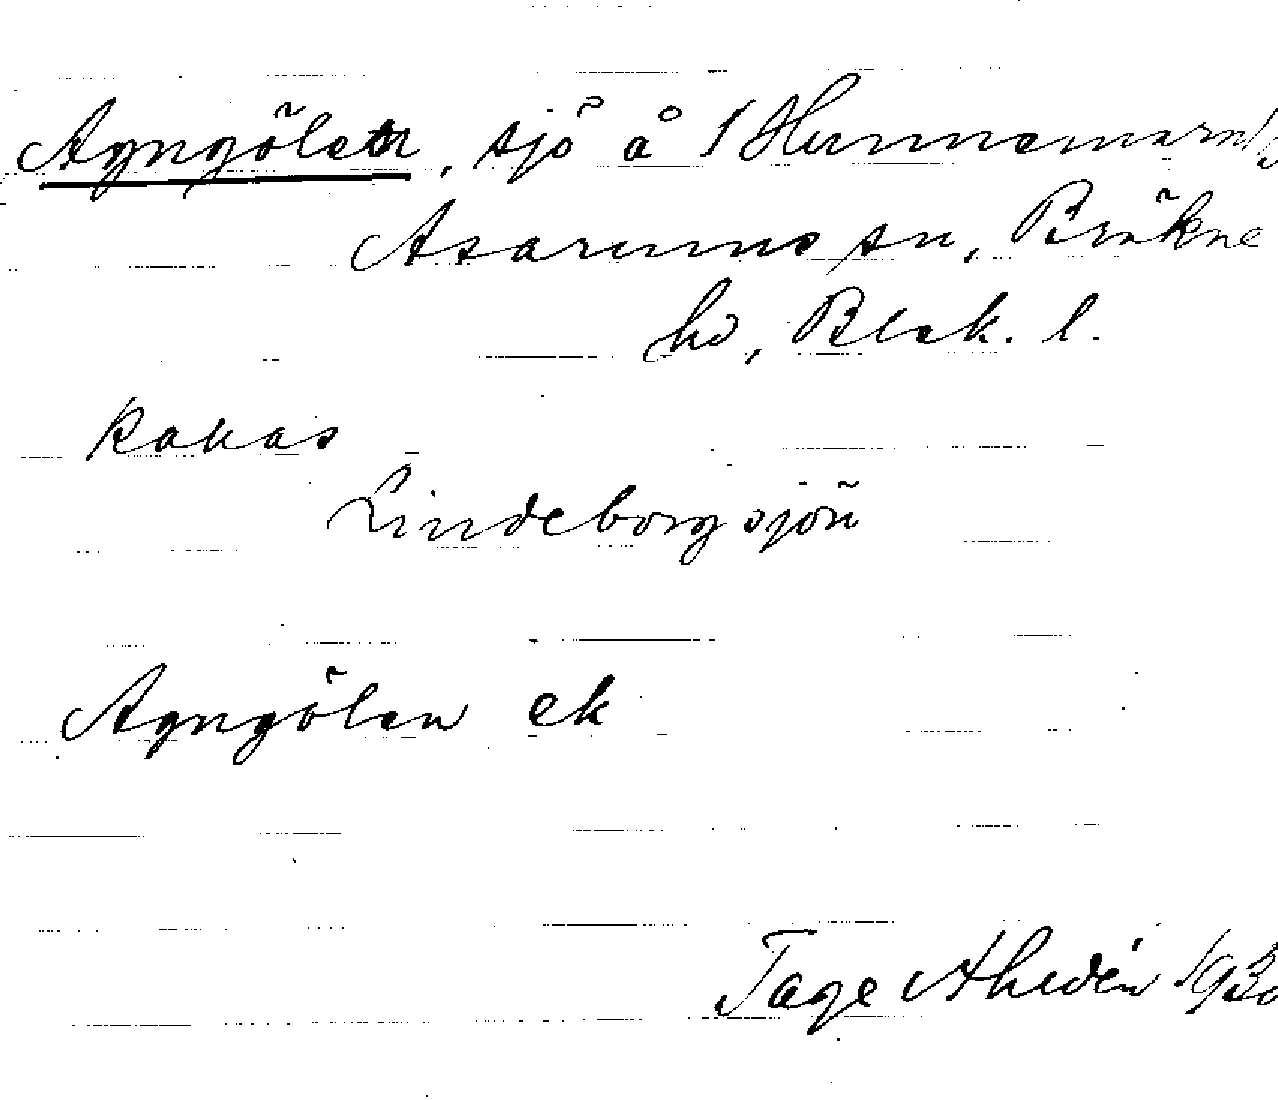 Agngölen, sjö å /Hunnamara/
Asarums sn, Bräkne
hd, Blek. l.
kallas
Lindeborgsjön
Agngölen ek
Tage Ahldén 1930